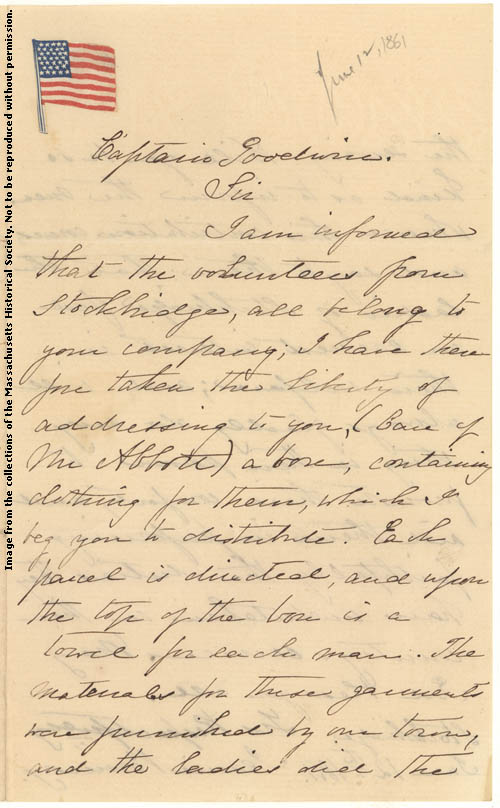 June 12, 1861
Captain Goodwin.
Sir
I am informed
that the volunteers from
Stockbridge, all belong to
your company, I have there
fore taken the liberty of
addressing to you, (Care of
Mr Abbott) a box, containing
clothing for them, which I
beg you to distribute. Each
parcel is directed, and upon
the top of the box is a
towel for each man. The
materials for these garments
were furnished by our town,
and the ladies did the
Image from the collections of the Massachusetts Historical Society. Not to be reproduced without permission.